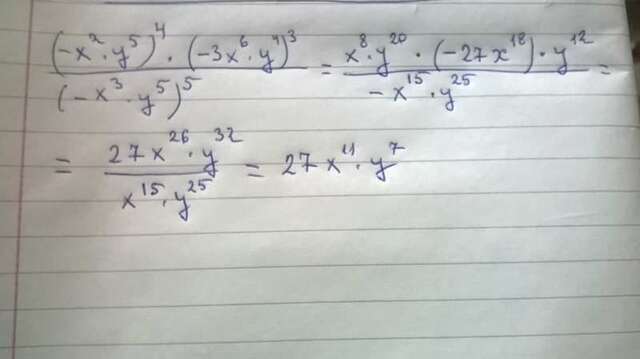 (-x²·y⁵)⁴·(-3x⁶·y⁴)³ / (-x³·y⁵)⁵ = x⁸·y²⁰·(-27x¹⁸)·y¹² / -x¹⁵·y²⁵ =
= 27x²⁶·y³² / x¹⁵·y²⁵ = 27x¹¹·y⁷